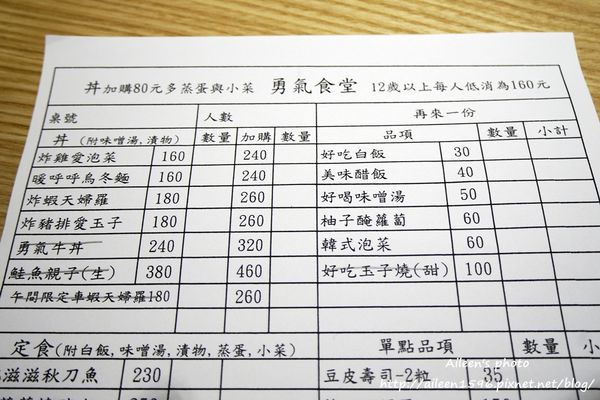 丼加購80元多蒸蛋與小菜 勇氣食堂 12歲以上每人低消為160元
桌號 人數 再來一份
丼(附味噌湯,漬物) 數量 加購 數量 品項 數量 小計
炸雞愛泡菜 160 240 好吃白飯 30
暖呼呼烏冬麵 160 240 美味醋飯 40
炸蝦天婦羅 180 260 好喝味噌湯 50
炸豬排愛玉子 180 260 柚子醃蘿蔔 60
勇氣牛丼 240 320 韓式泡菜 60
鮭魚親子(生) 380 460 好吃玉子燒(甜) 100
午間限定車蝦天婦羅180 260
定食(附白飯,味噌湯,漬物,蒸蛋,小菜) 單點品項 數量 小
滋滋秋刀魚 230 豆皮壽司-2粒 35
Aileen's photo
http://aileen1596.pixnet.net/blog/